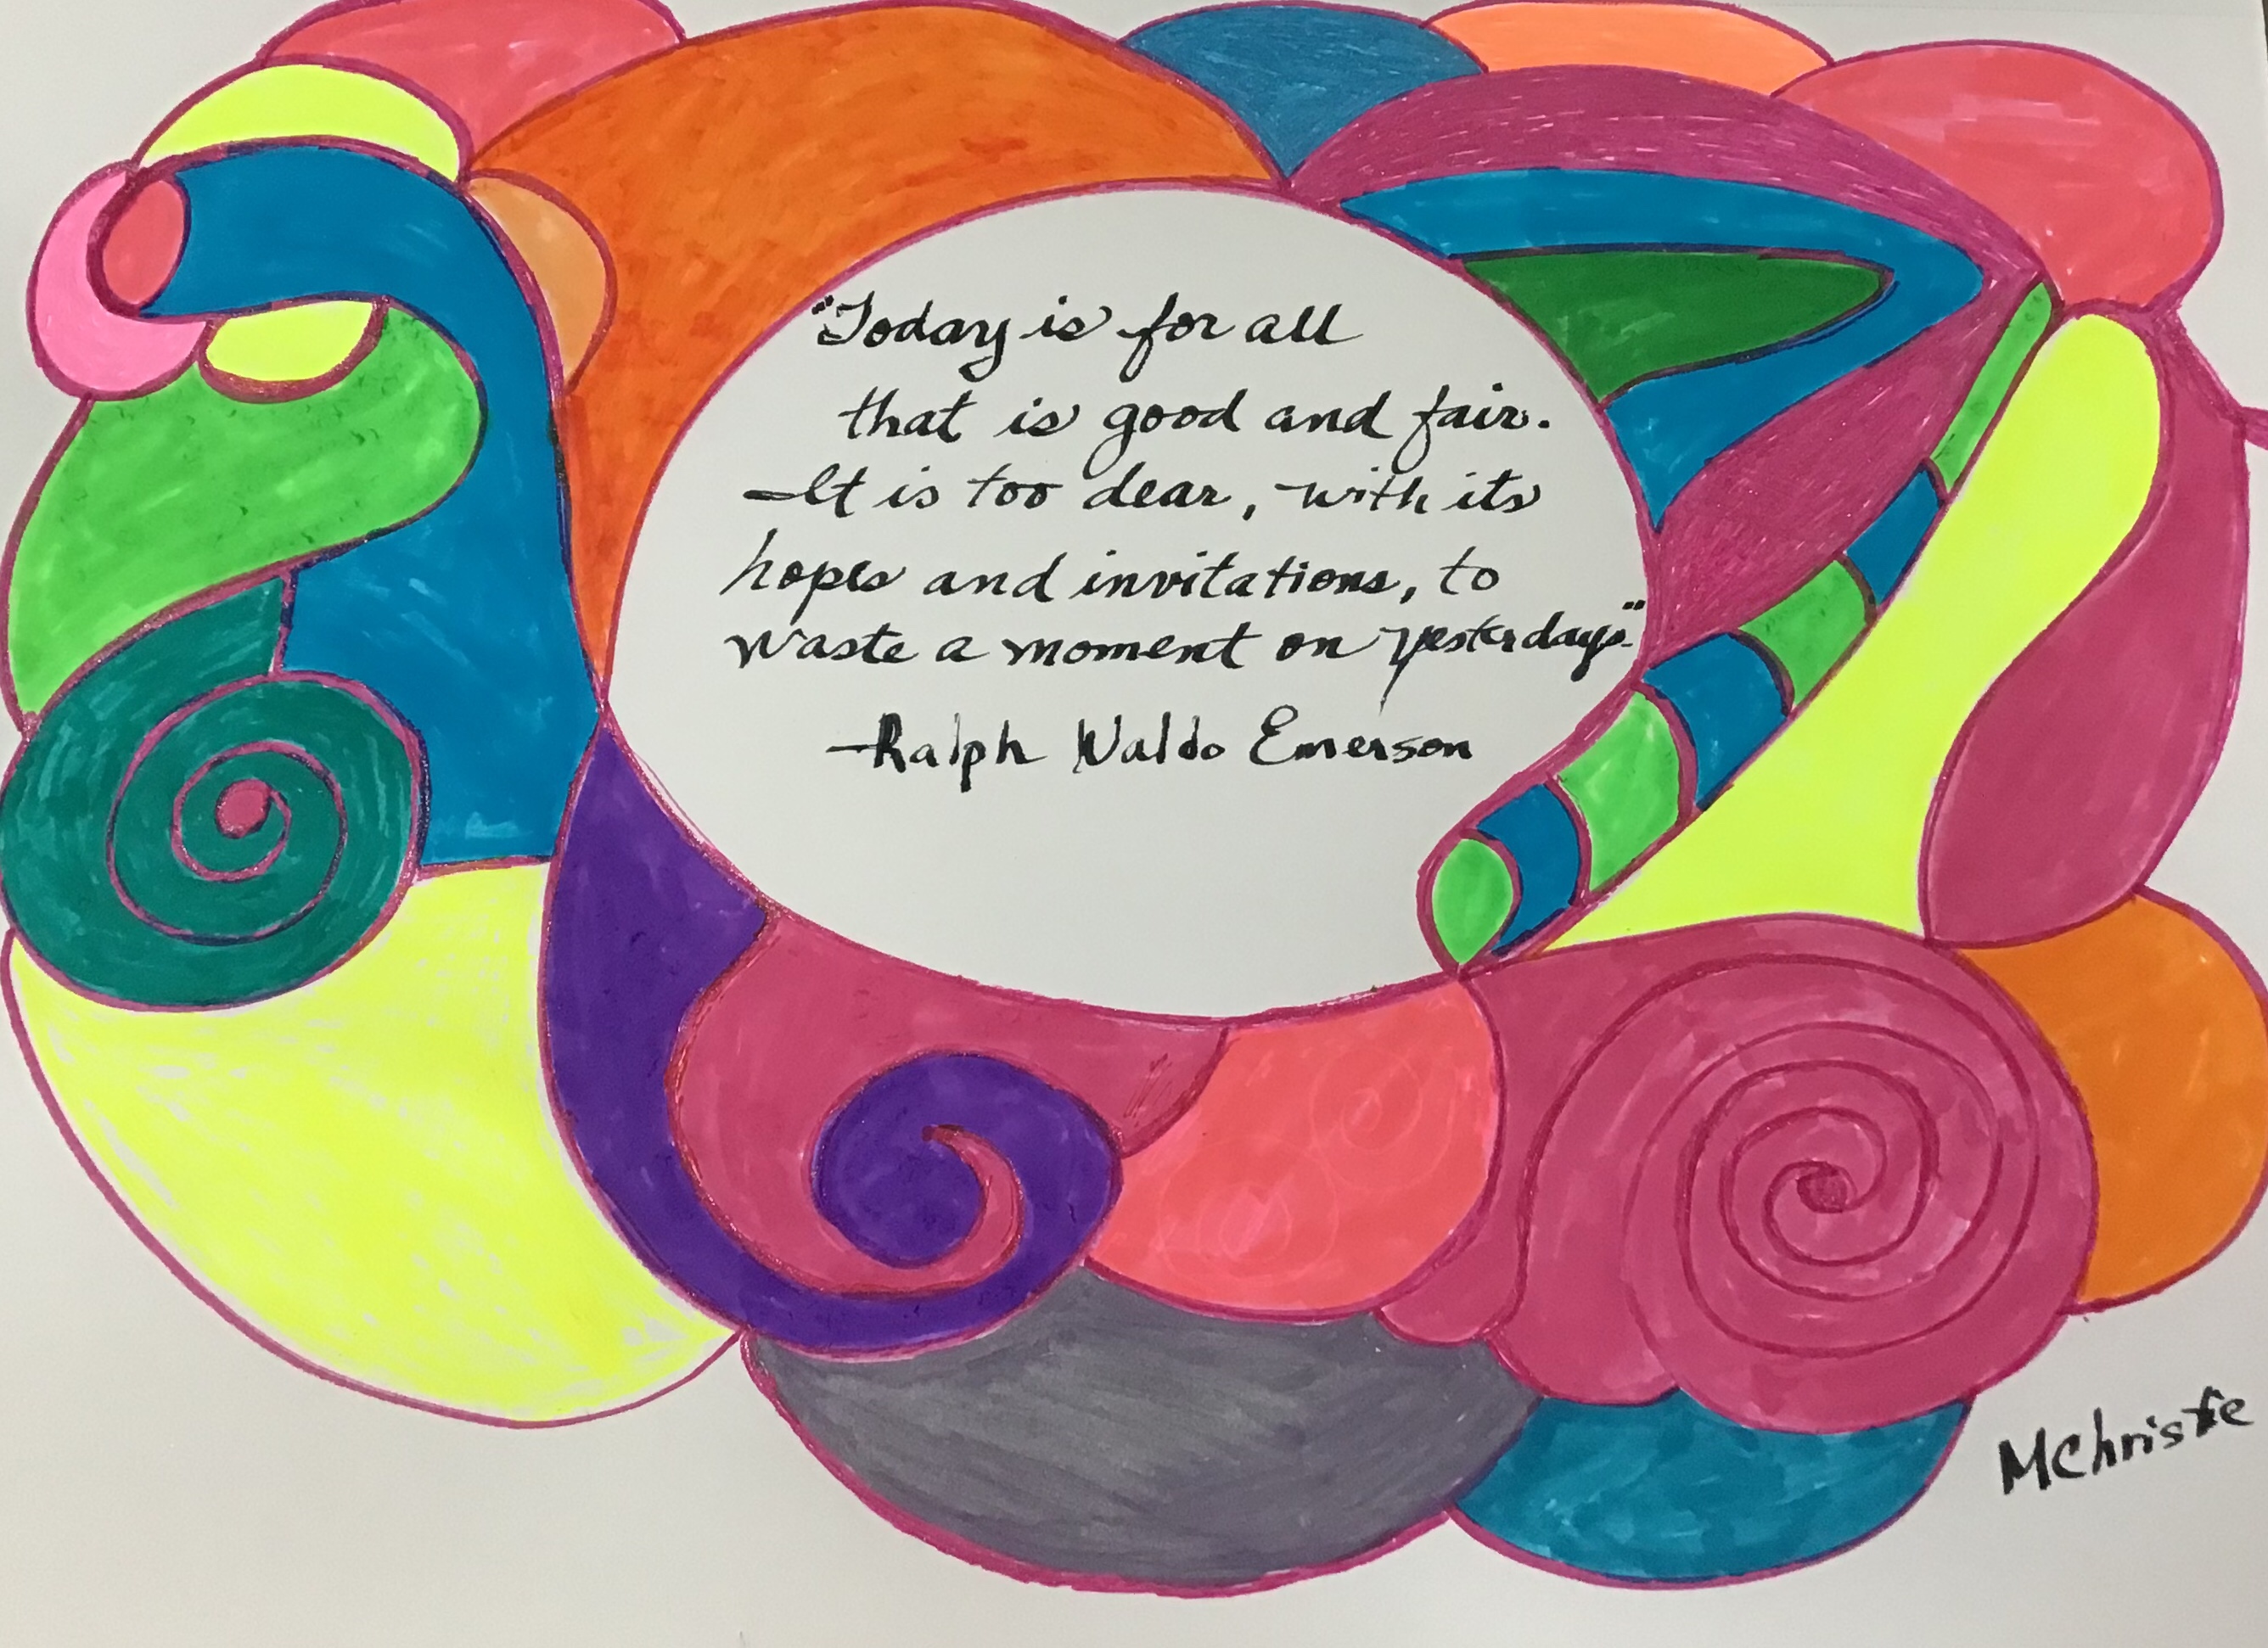 "Today is for all
that is good and fair.
It is too dear, with its
hopes and invitations, to
waste a moment on yesterdays."
-Ralph Waldo Emerson
MChristie